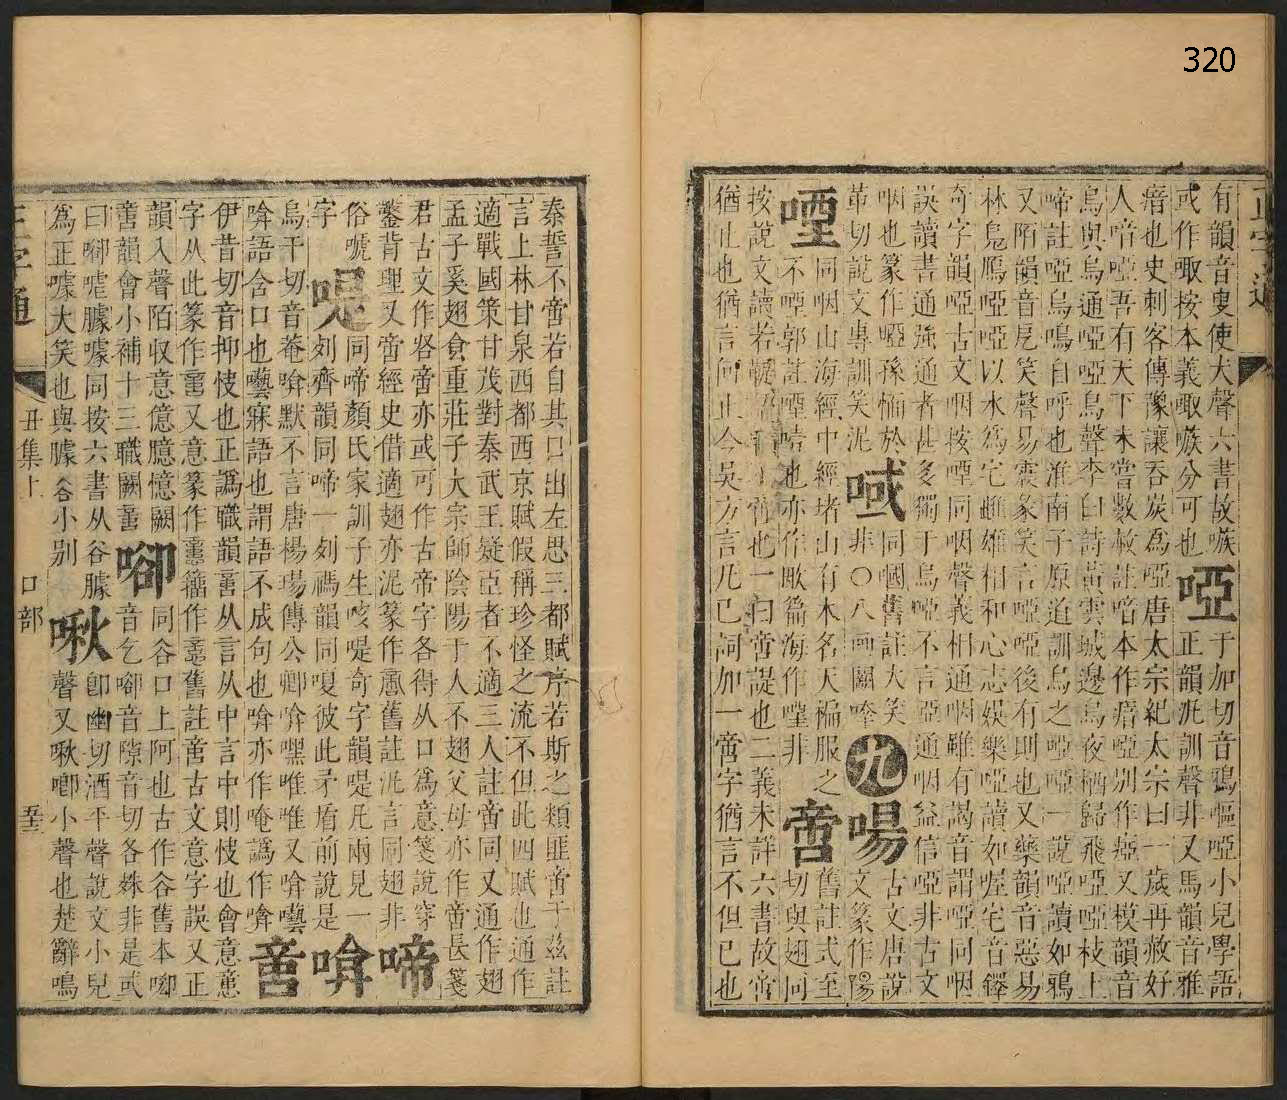 320
正字通
有韻音叟使犬聲六書故嗾
或作㖩按本義㖩嗾分可也
啞
于加切音鴉嘔啞小兒學語
正韻泥訓聲非又馬韻音雅
瘖也史刺客傳豫讓吞炭爲啞唐太宗紀太宗曰一歲再赦好
人喑啞吾有天下未嘗數赦註喑本作瘖啞別作瘂又模韻音
烏與烏通啞啞烏聲李白詩黃雲城邊烏夜棲歸飛啞啞枝上
啼註啞烏鳴自呼也淮南子原道訓烏之啞啞一說啞讀如鴉
又陌韻音戹笑聲易震彖笑言啞啞後有則也又藥韻音惡易
林鳧鴈啞啞以水爲宅雌雄相和心志娛樂啞讀如喔宅音鐸
奇字韻啞古文咽按㖶同咽聲義相通咽雖有謁音謂啞同咽
誤讀書通強通者甚多獨于烏啞不言亞通咽益信啞非古文
咽也篆作啞孫愐於
革切說文專訓笑泥
㖪
同嘓舊註大笑
非〇八畫關喹
九
喝
古文唐說
文篆作陽
㖶
同咽山海經中經堵山有木名天楄服之
不㖶郭註㖶噎也亦作欭篇海作㗌非
啻
舊註式至
切與翅同
按說文讀若鞮語時不啻也一曰啻諟也二義未詳六書故啻
猶止也猶言何止今吳方言凡已詞加一啻字猶言不但已也
秦誓不啻若自其口出左思三都賦序若斯之類匪啻于玆註
言上林甘泉西都西京賦假稱珍怪之流不但此四賦也通作
適戰國策甘茂對秦武王疑臣者不適三人註啻同又通作翅
孟子奚翅食重莊子大宗師陰陽于人不翅父母亦作啻長箋
君古文作㕁啻亦或可作古帝字各得从口爲意箋說穿
鑿背理又啻經史借適翅亦泥篆作𠶷舊註泥言同翅非
啼
俗嗁
字
喍
同啼顏氏家訓子生咳喍奇字韻喍凡兩見一
刘齊韻同啼一刘禡韻同嗄彼此矛盾前說是
啽
烏干切音菴啽默不言唐楊瑒傳公卿啽嘿唯唯又啽囈
啽語含口也囈寐語也謂語不成句也啽亦作唵譌作啽
𠶷
伊昔切音抑快也正譌職韻𠶷从言从中言中則快也會意𠶷
字从此篆作𠶷又意篆作𢡃籀作𢡃舊註啻古文意字誤又正
韻入聲陌収意億臆憶闕
𠶷韻會小補十三職闕𠶷
㖸
同谷口上阿也古作谷舊本㖸
音乞㖸音隙音切各姝非是或
曰㖸嘘臄噱同按六書从谷臄
爲正噱大笑也與臄谷小别
啾
卽幽切酒平聲說文小兒
聲又啾喞小聲也楚辭鳴
正字通
丑集上
口部
五三